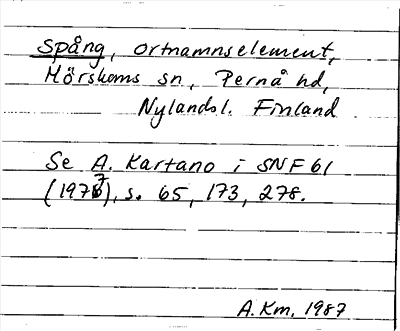 Spång, ortnamnselement,
Mörskoms sn, Pernå hd,
Nylandsl. Finland
Se A. Kartano i SNF 61
(1977), s. 65, 173, 278.
A.Km, 1987